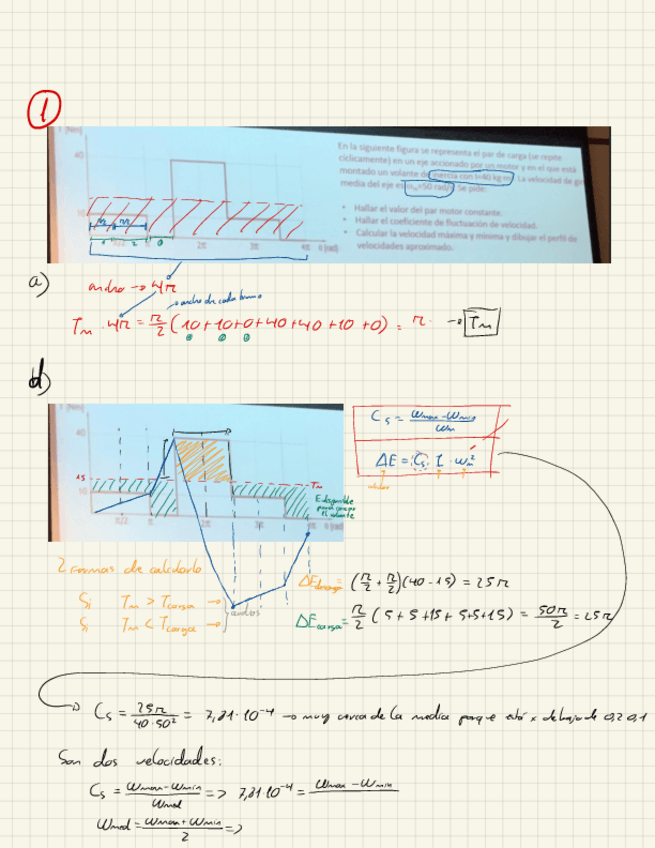 1
T [Nm]
En la siguiente figura se representa el par de carga (se repite
cíclicamente) en un eje accionado por un motor y en el que está
montado un volante de inercia con I=40 kg·m². La velocidad de giro
media del eje es ωm=50 rad/s. Se pide:
• Hallar el valor del par motor constante.
• Hallar el coeficiente de fluctuación de velocidad.
• Calcular la velocidad máxima y mínima y dibujar el perfil de
velocidades aproximado.
40
10
2π 3π 4π θ [rad]
a)
ancho → 4π
→ ancho de cada tramo
Tm · 4π = π/2 (10+10+0+40+40+10+0) = π · → Tm
b)
T [Nm]
40
15
10
Tm
E disponible
π/2 π 2π 3π 4π θ [rad]
Cs = (ωmax - ωmin)/ωm
ΔE = Cs · I · ωm²
2 formas de calcularlo
Si Tm > Tcarga →
Si Tm < Tcarga →
ΔEdescarga = (π/2 + π/2)(40-15) = 25π
ΔEcarga = π/2 (5+5+15+5+5+15) = 50π/2 = 25π
→ Cs = 25π/(40·50²) = 7,81·10⁻⁴ → muy cerca de la media porque está x debajo de 0,2 0,1
Son dos velocidades:
Cs = (ωmax - ωmin)/ωmed => 7,81·10⁻⁴ = ωmax - ωmin
ωmed = (ωmax + ωmin)/2 =>